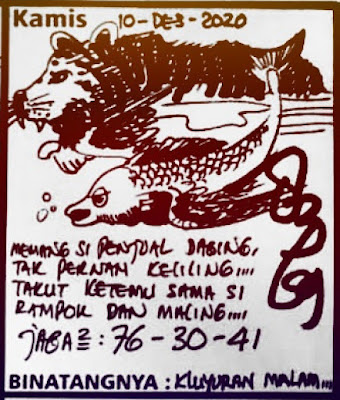 Kamis 10-DES-2020
MEMANG SI PENJUAL DAGING,
TAK PERNAH KELILING....
TAKUT KETEMU SAMA SI
RAMPOK DAN MALING....
JAGA2 : 76-30-41
BINATANGNYA : KLUYURAN MALAM...